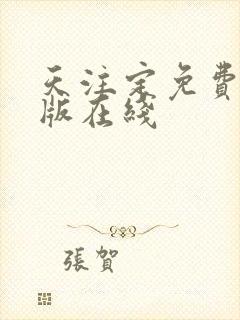 天注定免費
版在綫
張賀